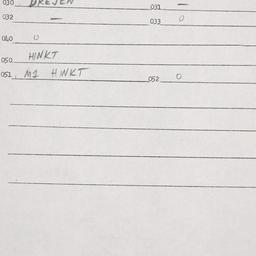 030 DREJEN 031 —
032 — 033 0
040 0
050 HINKT
051 M1 HINKT 052 0